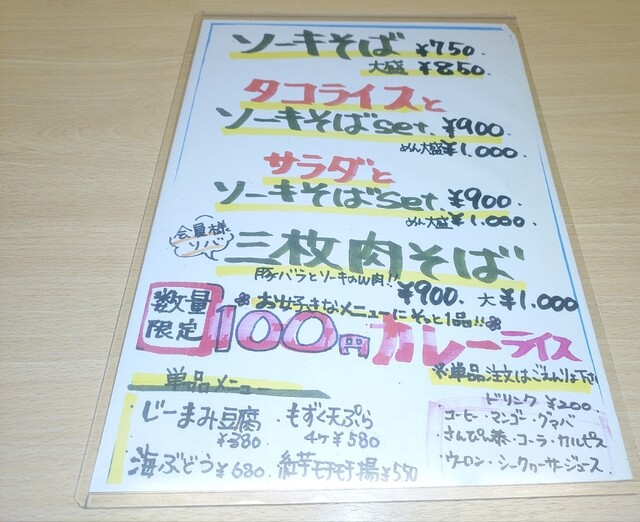 ソーキそば ¥750.
大盛 ¥850
タコライスと
ソーキそばset. ¥900.
めん大盛¥1.000
サラダと
ソーキそばset. ¥900
めん大盛¥1.000
会員様
ソバ
三枚肉そば
豚バラとソーキのW肉!!
¥900. 大¥1.000
数量
限定
お好きなメニューにそっと1品!!
100円カレーライス
※単品注文はごえんりょ下さい
単品メニュー
・じーまみ豆腐
¥380
・もずく天ぷら
4ヶ¥580
・海ぶどう¥680
・紅芋モチモチ揚¥550
ドリンク ¥200
・コーヒー・マンゴー・グァバ
・さんぴん茶・コーラ・カルピス
・ウーロン・シークヮーサージュース